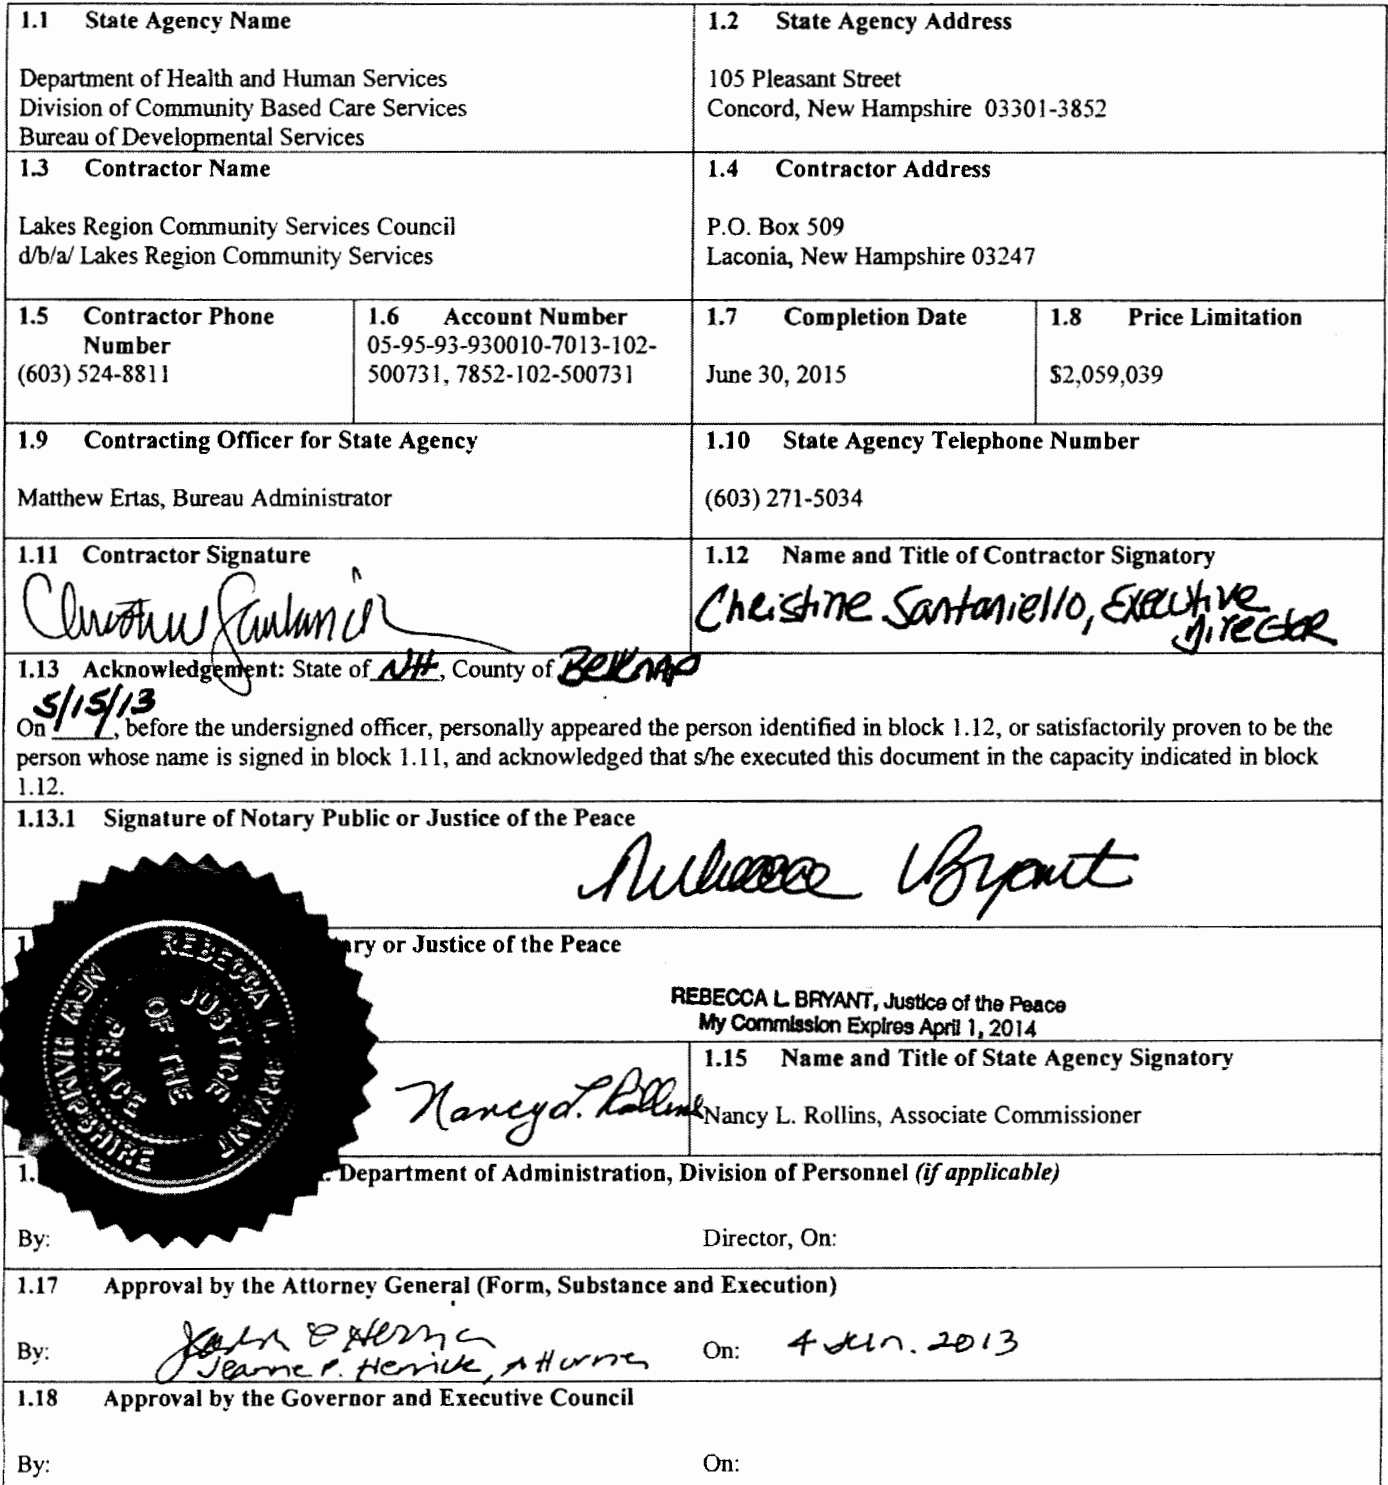 1.1 State Agency Name
Department of Health and Human Services
Division of Community Based Care Services
Bureau of Developmental Services
1.2 State Agency Address
105 Pleasant Street
Concord, New Hampshire 03301-3852
1.3 Contractor Name
Lakes Region Community Services Council
d/b/a/ Lakes Region Community Services
1.4 Contractor Address
P.O. Box 509
Laconia, New Hampshire 03247
1.5 Contractor Phone
Number
(603) 524-8811
1.6 Account Number
05-95-93-930010-7013-102-
500731, 7852-102-500731
1.7 Completion Date
June 30, 2015
1.8 Price Limitation
$2,059,039
1.9 Contracting Officer for State Agency
Matthew Ertas, Bureau Administrator
1.10 State Agency Telephone Number
(603) 271-5034
1.11 Contractor Signature
Christine Santaniello
1.12 Name and Title of Contractor Signatory
Christine Santaniello, Executive
Director
1.13 Acknowledgement: State of NH, County of Belknap
On 5/15/13, before the undersigned officer, personally appeared the person identified in block 1.12, or satisfactorily proven to be the
person whose name is signed in block 1.11, and acknowledged that s/he executed this document in the capacity indicated in block
1.12.
1.13.1 Signature of Notary Public or Justice of the Peace
Rebecca Bryant
ary or Justice of the Peace
REBECCA L. BRYANT, Justice of the Peace
My Commission Expires April 1, 2014
REBECCA L. BRYANT
NEW HAMPSHIRE
JUSTICE
OF THE
PEACE
Nancy L. Rollins
1.15 Name and Title of State Agency Signatory
Nancy L. Rollins, Associate Commissioner
1. . Department of Administration, Division of Personnel (if applicable)
By:
Director, On:
1.17 Approval by the Attorney General (Form, Substance and Execution)
By: Jeanne P. Herrick, Attorney
On: 4 Jun. 2013
1.18 Approval by the Governor and Executive Council
By:
On: